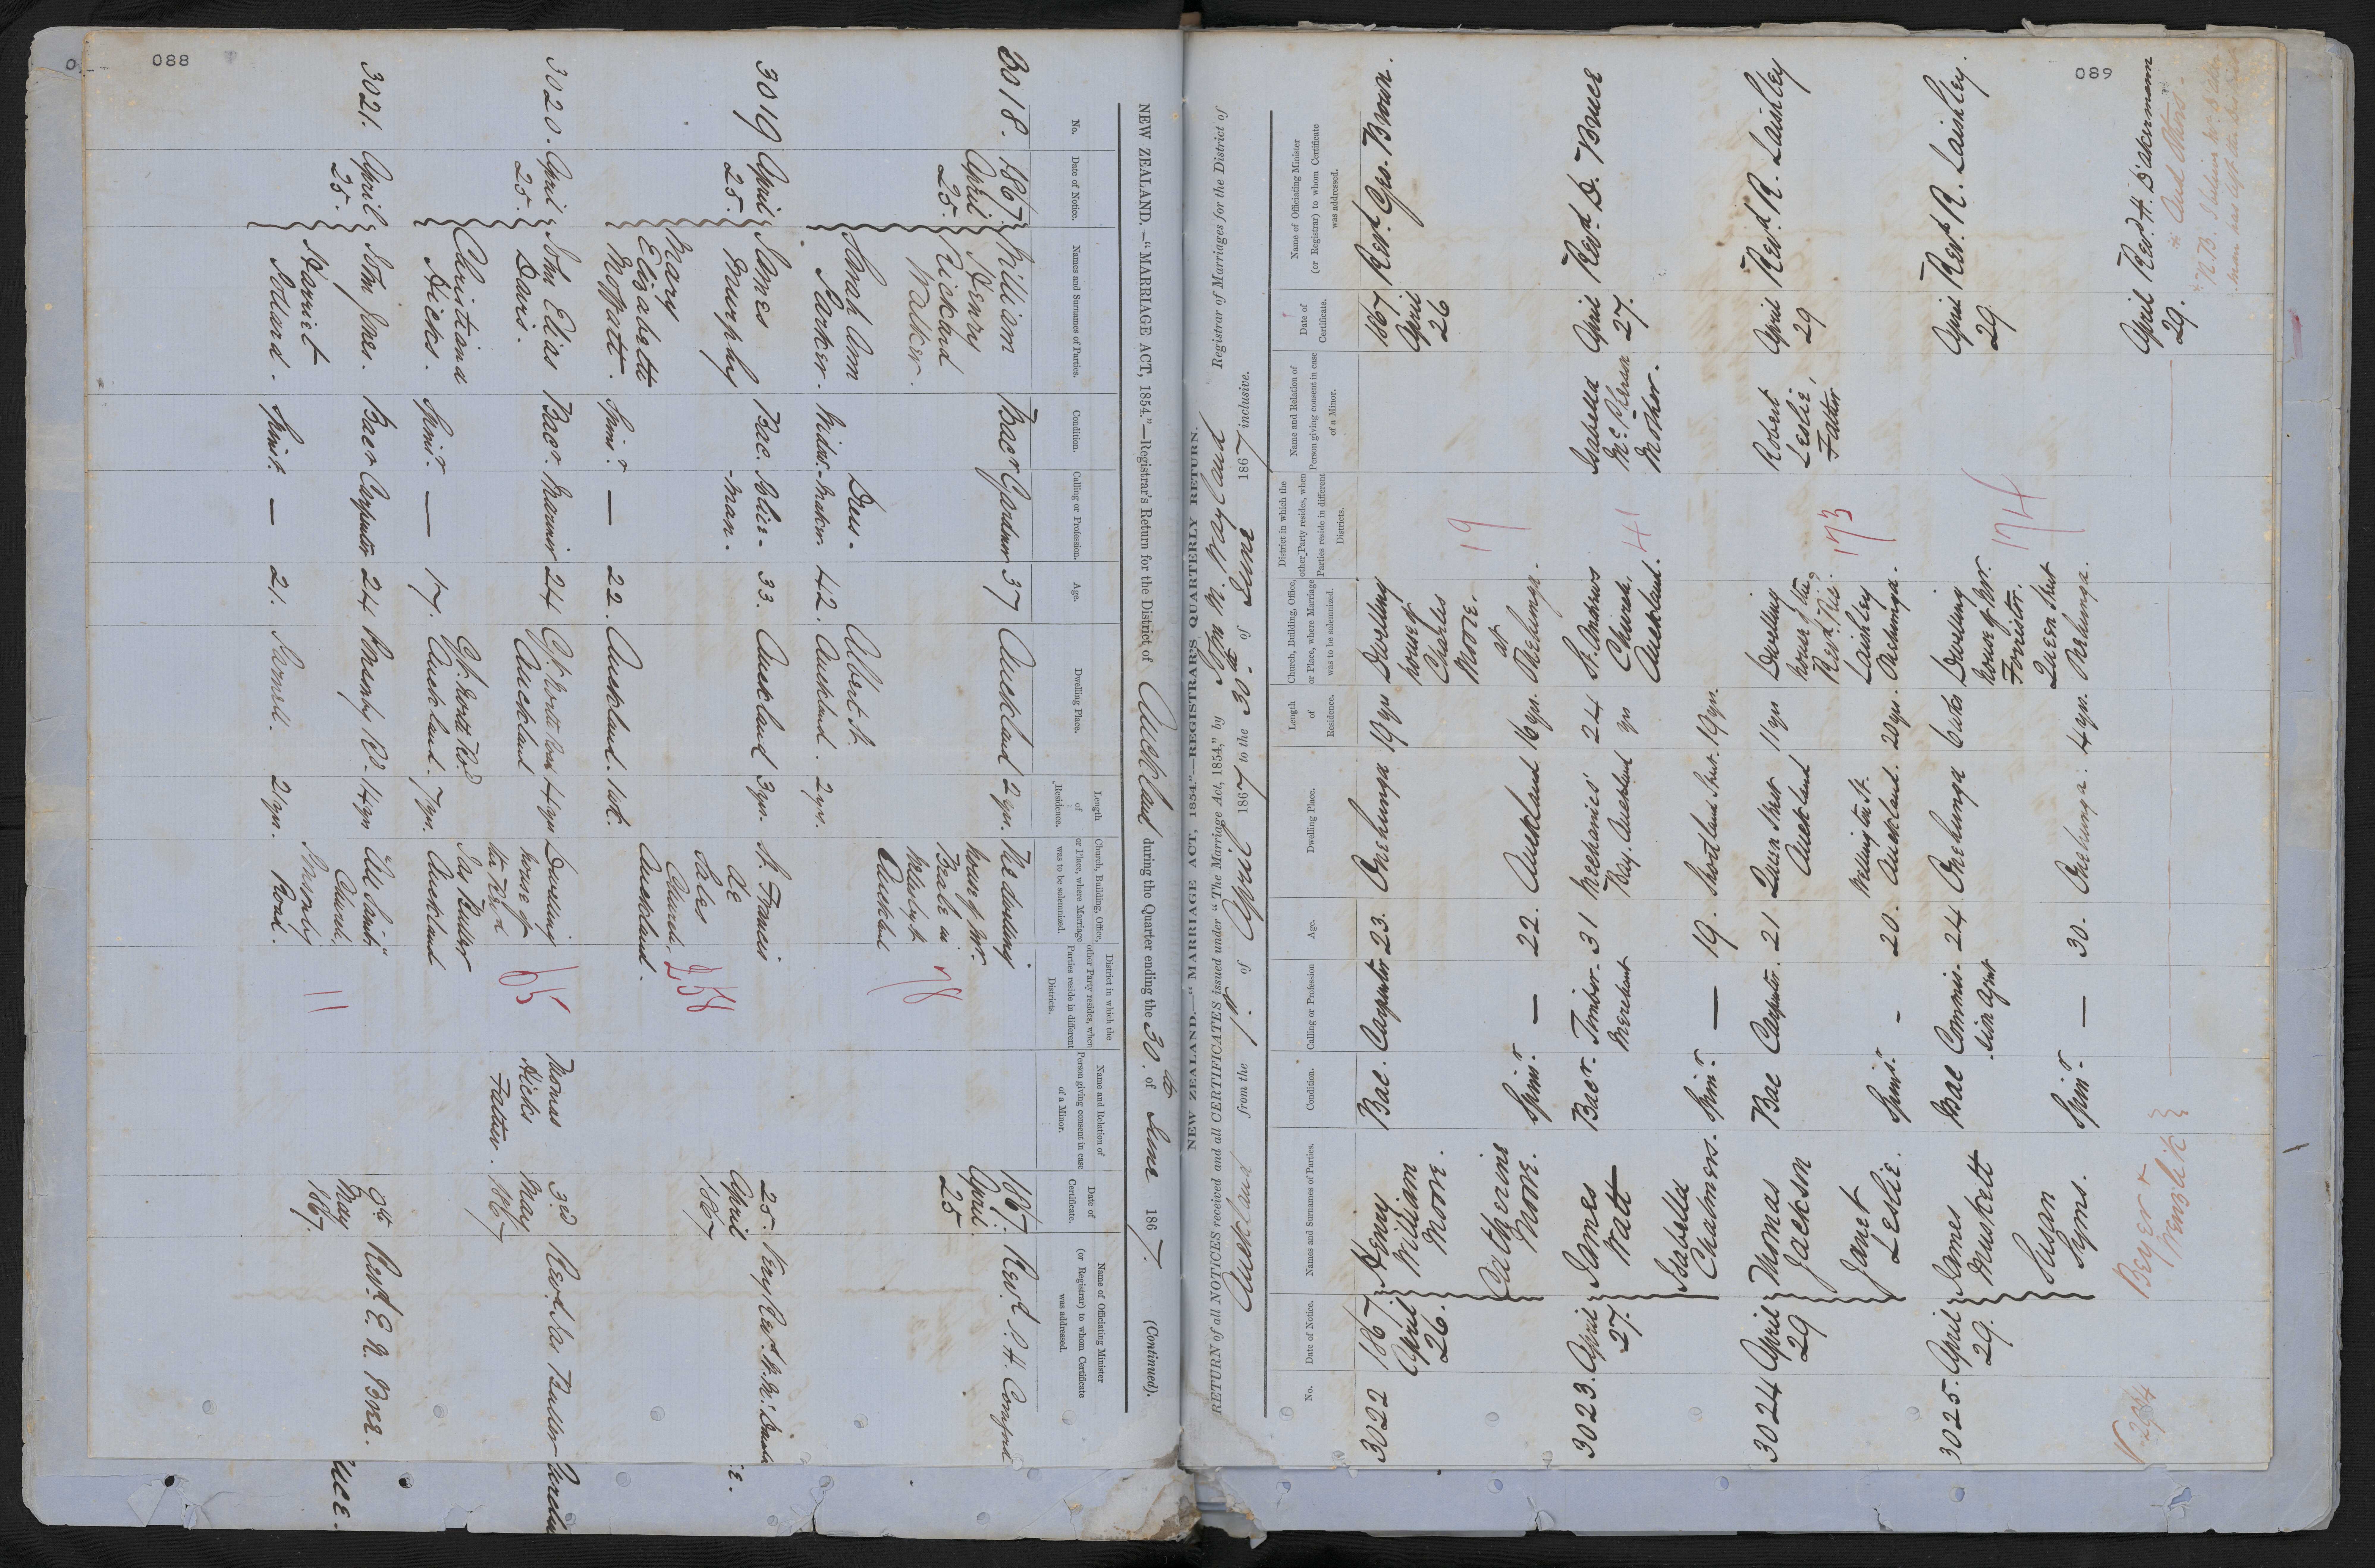 088
NEW ZEALAND.—"MARRIAGE ACT, 1854."—Registrar's Return for the District of Auckland during the Quarter ending the 30th of June 1867. (Continued).
No.
Date of Notice.
Names and Surnames of Parties.
Condition.
Calling or Profession.
Age.
Dwelling Place.
Length
of
Residence.
Church, Building, Office,
or Place, where Marriage
was to be solemnized.
District in which the
other Party resides, when
Parties reside in different
Districts.
Name and Relation of
Person giving consent in case
of a Minor.
Date of
Certificate.
Name of Officiating Minister
(or Registrar) to whom Certificate
was addressed.
3018. 1867. William Bacr 37 Auckland 2 yrs. The dwelling 1867. Revd
April Henry house of Mr. April
25. Rickard Beale in 25
Walker. Auckland
78
Sarah Ann Dress- Albert St.
Parker. Widw. -maker. 42. Auckland. 2 yrs.
3019 April James Bac. Police- 33. Auckland 3 yrs. St. Francis 25. Very Revd
25. Murphy -man. de April
Sales 1867
Mary Church,
Elizabeth Auckland.
Moffatt. Spinr — 22. Auckland.
258
3020. April John Elias Bacr. Mariner 24 Gt. North Road 4 yrs Dwelling Thomas 3rd Revd Jas Buller
25. Davis. Auckland house of Hicks May
the Revd Father. 1867
Christiana Gt. North Rd Jas Buller
Hicks. Spinr. — 17. Auckland. 7 yrs. Auckland
65
3021. April John Jones. Bacr Carpenter 24 4 yrs All Saints 8th Revd E. N. Bree.
25. Church, May
Harriet Ponsonby 1867.
Stoddard. Spinr. — 21. 2 yrs. Road.
11
089
NEW ZEALAND.—"MARRIAGE ACT, 1854."—REGISTRAR'S QUARTERLY RETURN.
RETURN of all NOTICES received and all CERTIFICATES issued under "The Marriage Act, 1854," by Registrar of Marriages for the District of
Auckland from the 1st of April 1867 to the 30th of June 1867 inclusive.
No.
Date of Notice.
Names and Surnames of Parties.
Condition.
Calling or Profession
Age.
Dwelling Place.
Length
of
Residence.
Church, Building, Office,
or Place, where Marriage
was to be solemnized.
District in which the
other Party resides, when
Parties reside in different
Districts.
Name and Relation of
Person giving consent in case
of a Minor.
Date of
Certificate.
Name of Officiating Minister
(or Registrar) to whom Certificate
was addressed.
3022 1867 Henry Bac. Carpenter 23. Onehunga 19 yrs Dwelling 1867 Revd Geo. Brown.
April William house of April
26. Moore. Charles 26
Moore.
Catherine at
Moore. Spinr — 22. Auckland 16 yrs. Onehunga.
19
3023. April James Bacr. Timber- 31 Mechanics' 24 St. Andrews Isabella April Revd D. Bruce
27. Watt Merchant Bay. Auckland yrs Church, McPherson 27.
Auckland. Mother.
Isabella
Chalmers. Spinr. — 19. Shortland Street. 19 yrs.
41
3024 April Thomas Bac Carpenter. 21 Queen Street 11 yrs Dwelling Robert April Revd R. Laishley
29 Jackson Auckland house of the Leslie, 29
Revd Father
Janet Wellington St. Laishley
Leslie. Spinr. - 20. Auckland. 20 yrs. Onehunga.
173
3025. April James Bac Commis- 24 Onehunga 6 wks Dwelling April Revd R. Laishley.
29. Muskett sion Agent house of Mr. 29.
Susan Queen Street
Syms. Spinr. — 30. Onehunga. 4 yrs. Onehunga.
174
Beyer &
April
29.
Revd. H.